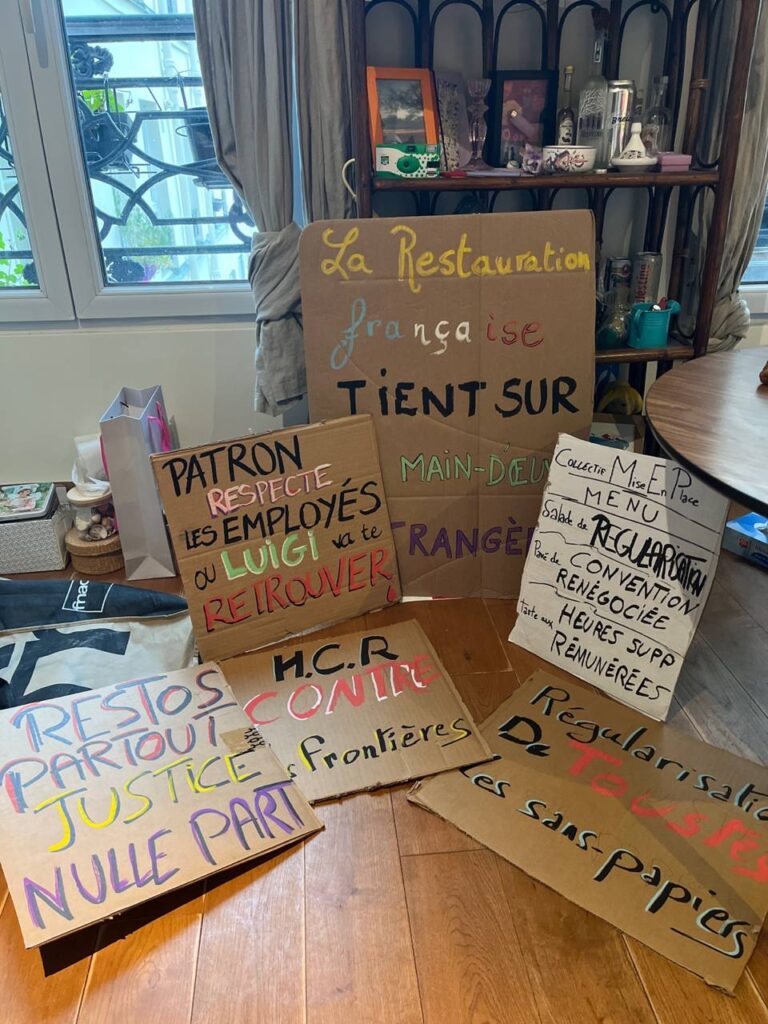 La Restauration
française
TIENT SUR
MAIN-D'ŒU
TRANGÈ
PATRON
RESPECTE
LES EMPLOYÉS
OU LUIGI va te
RETROUVER!
COLLECTIF MISE EN PLACE
MENU
Salade de REGULARISATION
Pavé de CONVENTION
RENÉGOCIÉE
Tarte aux HEURES SUPP
RÉMUNÉRÉES
H.C.R
CONTRE
frontières
RESTOS
PARTOUT
JUSTICE
NULLE PART
Régularisatio
De TOUSTES
Les sans-papiers
fnac